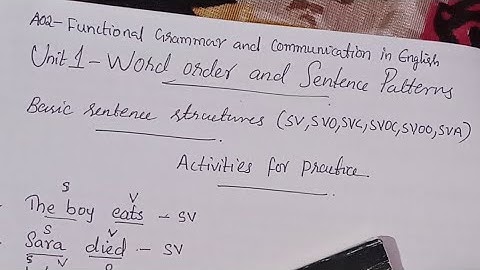 A02- Functional Grammar and Communication in English
Unit 1 - Word order and Sentence Patterns
Basic sentence structures (SV, SVO, SVC, SVOC, SVOO, SVA)
Activities for practice
S V
The boy eats - SV
S V
Sara died - SV
S V O